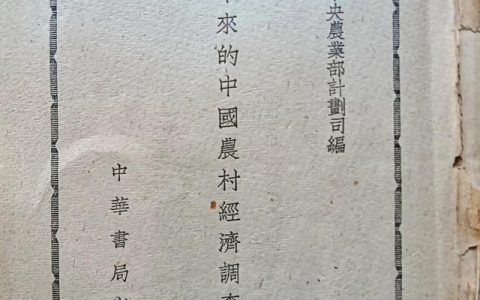 央農業部計劃司編
來的中國農村經濟調查
中華書局